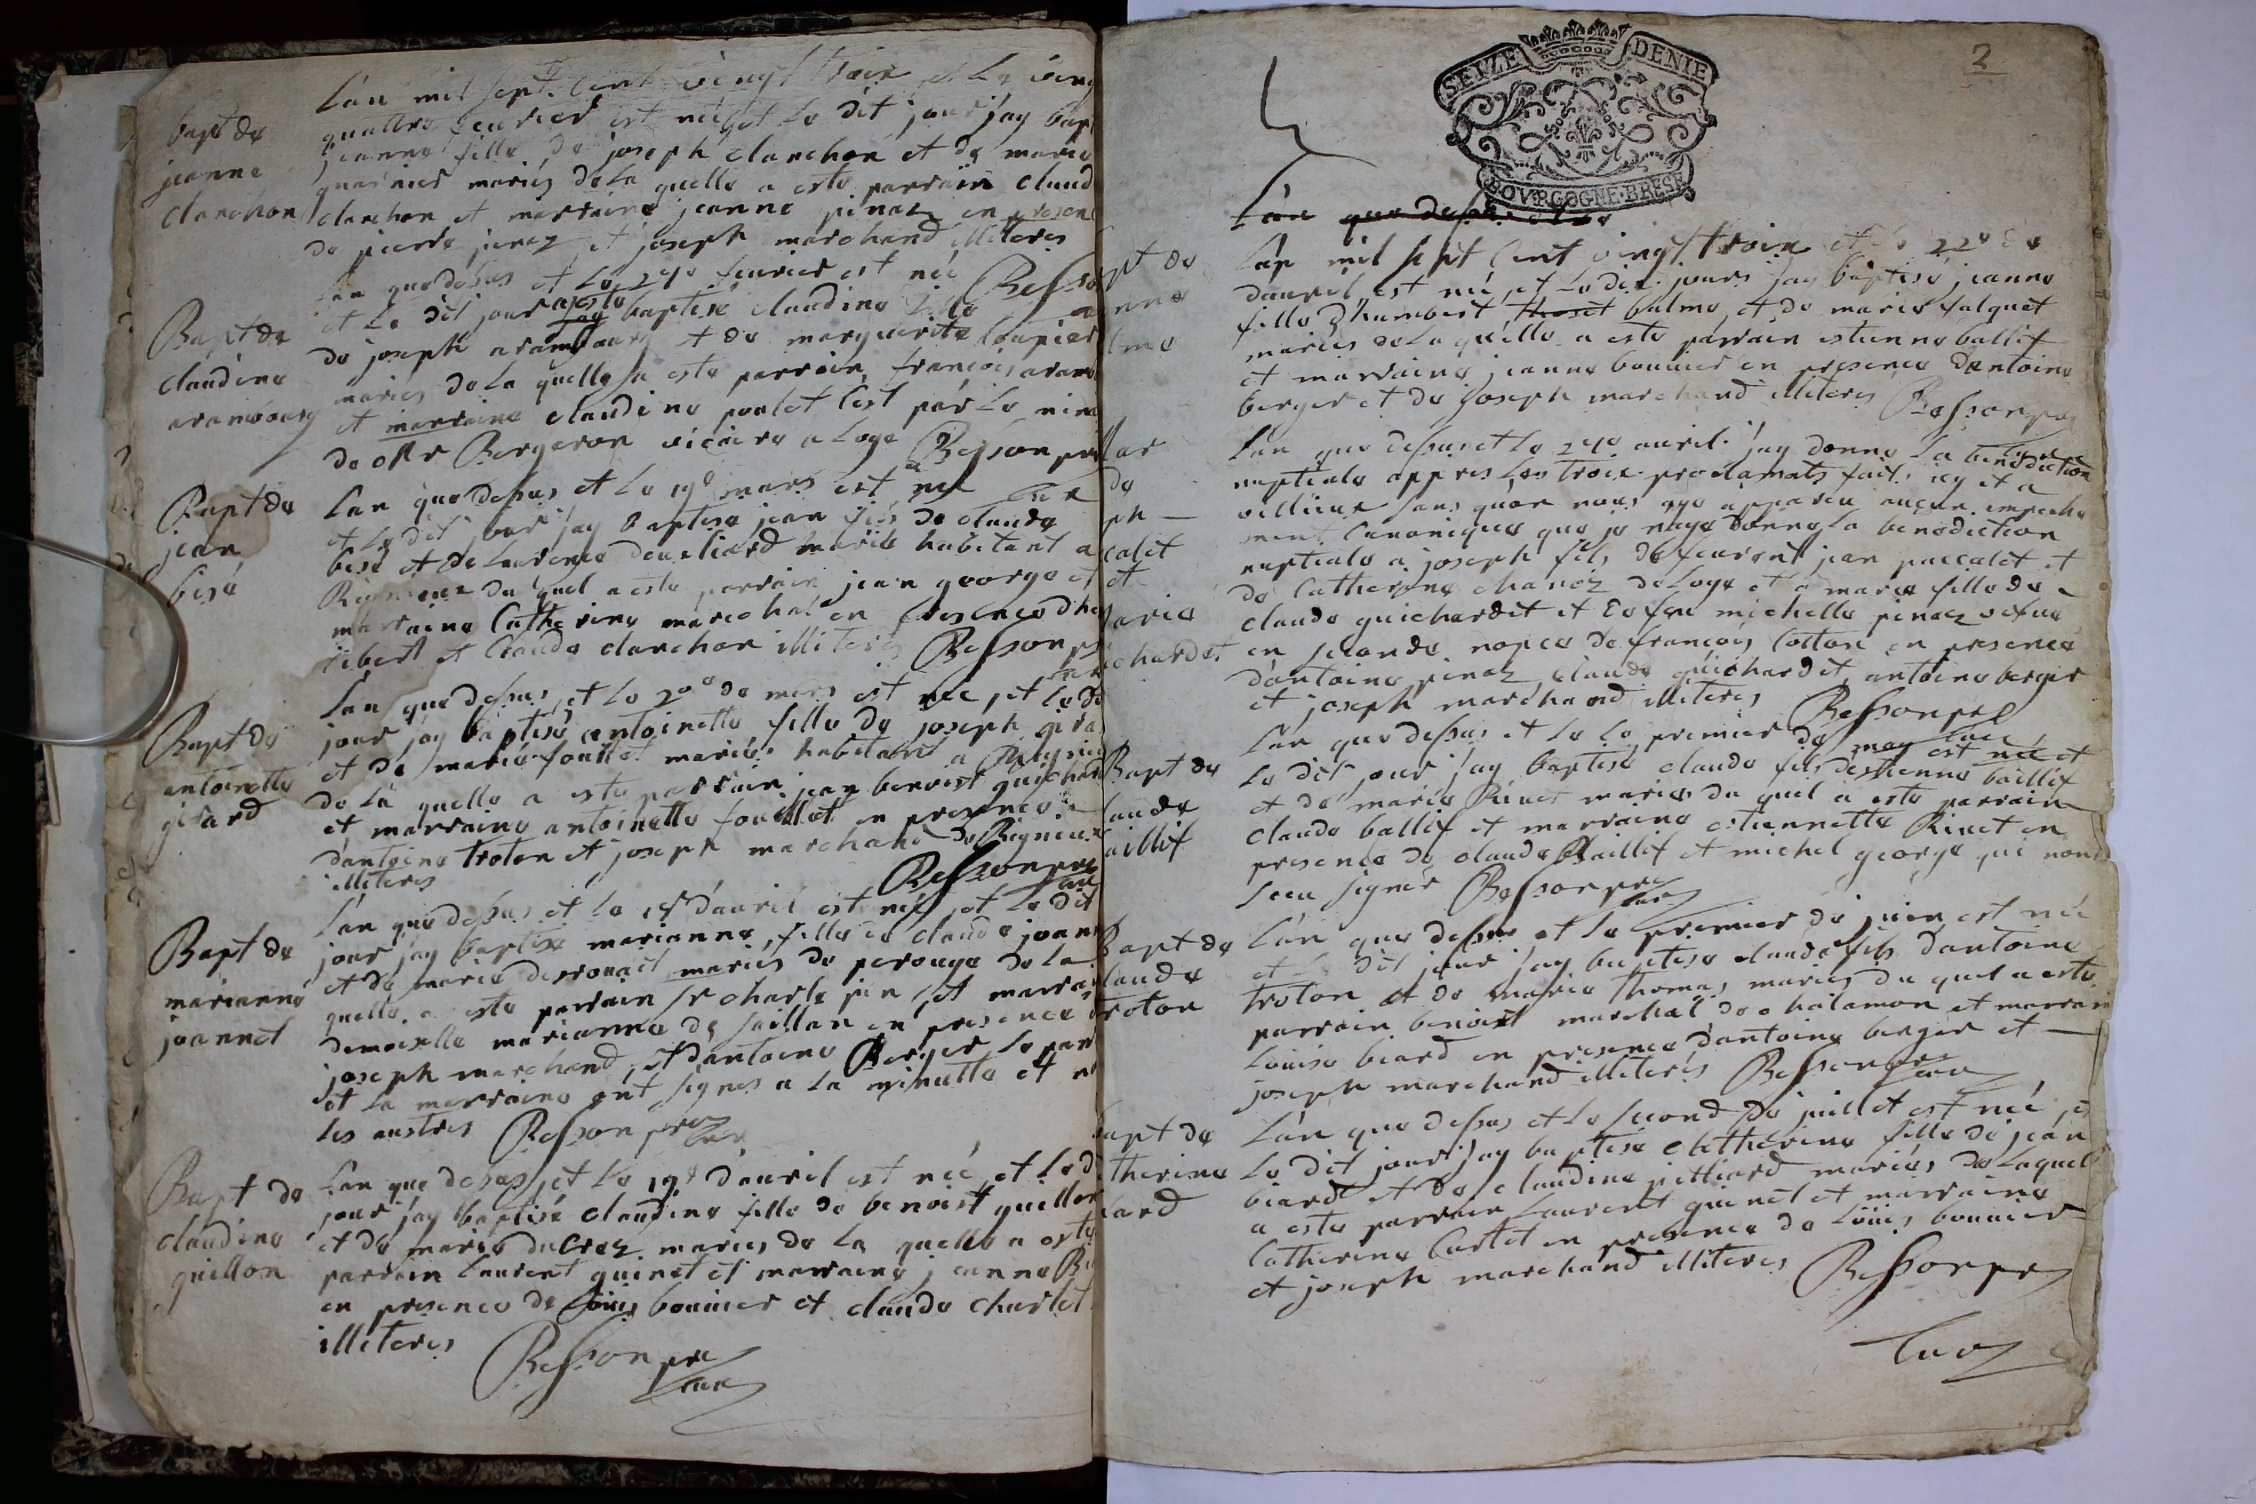 bapt de
jeanne
clanchon
Lan mil sept cent vingt trois et le ving
quattre feurier est née et le dit jour jay bapt
jeanne fille de joseph clanchon et de marie
mariés de la quelle a esté parrain claud
clanchon et marraine jeanne pinaz en presen
de pierre pinaz et joseph marchand illiteres
Besso
Bapt de
claudine
arambourg
Lan que desus et le feurier est née
et le dit jour a esté baptisé claudine fille
de joseph arambourg et de marguerite loupier
mariés de la quelle a esté parrain françois aram
et marraine claudine poulet lest par le min
de Mr Bergeron vicaire a loye Besson pre
Bapt de
jean
bisé
Lan que dessus et le 19e mars est né
et le dit jour jay Baptisé jean fils de claude
bisé et de laurence deueliard mariés habitant a
Rigneux du quel a esté parrain jean george et
marraine Catherine marechal en presence d
ribert et Claude clanchon illiteres Besson pre
Bapt de
antoinette
girard
Lan que dessus et le 20e de mars est née et le d
jour jay baptisé antoinette fille de joseph gira
et de marie fouillet mariés habitant a Rigneu
de la quelle a esté parrain jean benoist guichar
et marraine antoinette fouillet en presence
dantoine troton et joseph marchand de Rigneux
illiteres
Besson pre
cure
Bapt de
marianne
joannet
Lan que dessus et le dauril est née et le dit
jour jay baptisé marianne fille de claude joann
et de marie mariés de perouge de la
quelle a esté parrain Sr charle et marrai
demoiselle marianne de seillan en presence
joseph marchand et dantoine Berger le par
et la marraine ont signes a la minutte et n
les austres Besson pre
cure
Bapt de
claudine
guillon
Lan que desus et le 19e dauril est née et le d
jour jay baptisé claudine fille de benoist guillon
et de marie ducroz mariés de la quelle a esté
parrain laurent guinet et marraine jeanne
en presence de louis bouuier et claude charlet
illiteres Besson pre
cure
2
SEIZE DENIE
BOVRGOGNE·BRESE
Lan que dessus
pt de
nne
lme
Lan mil sept cent vingt trois et le 22e
dauril est née et le dit jours jay baptisé jeanne
fille dhumbert balme et de marie falquet
mariés de la quelle a esté parrain estienne ballif
et marraine jeanne bouuier en presence dantoine
berger et de joseph marchand illiteres Besson pre
ar
de
ph
calet
et
arie
chardet
Lan que dessus et le auril jay donné la benediction
nuptiale appres les trois proclamats fait icy et a
villieux sans quon nous aye apparu aucun empeche
ment Canonique que je naye donné la benediction
nuptiale a joseph fils de feu jean paccalet et
de Catherine chanez de loye et a marie fille de
claude guichardet et de feu michelle pinaz vefue
en seconde nopce de françois cotton en presence
dantoine pinaz claude guichardet antoine berger
et joseph marchand illiteres Besson pre
Bapt de
laude
aillif
Lan que dessus et le le premier de may est né et
le dit jour jay baptisé claude fils destienne baillif
et de marie Riuet mariés du quel a esté parrain
claude ballif et marraine estiennette Riuet en
presence de claude Baillif et michel george qui nont
sceu signer Besson pre
cure
Bapt de
laude
troton
Lan que dessus et le premier de juin est né
et le dit jour jay baptisé claude fils dantoine
troton et de marie thomas mariés du quel a esté
parrain benoist marechal de chalamon et marrain
louise biard en presence dantoine berger et
joseph marchand illiterés Besson pre
cure
apt de
therine
iard
Lan que dessus et le second de juillet est née et
le dit jour jay baptisé Chatherine fille de jean
biard et de claudine pilliard mariés de laquel
a esté parrain laurent guinet et marraine
Catherine Curtet en presence de louis bouuier
et joseph marchand illiteres Besson pre
cure